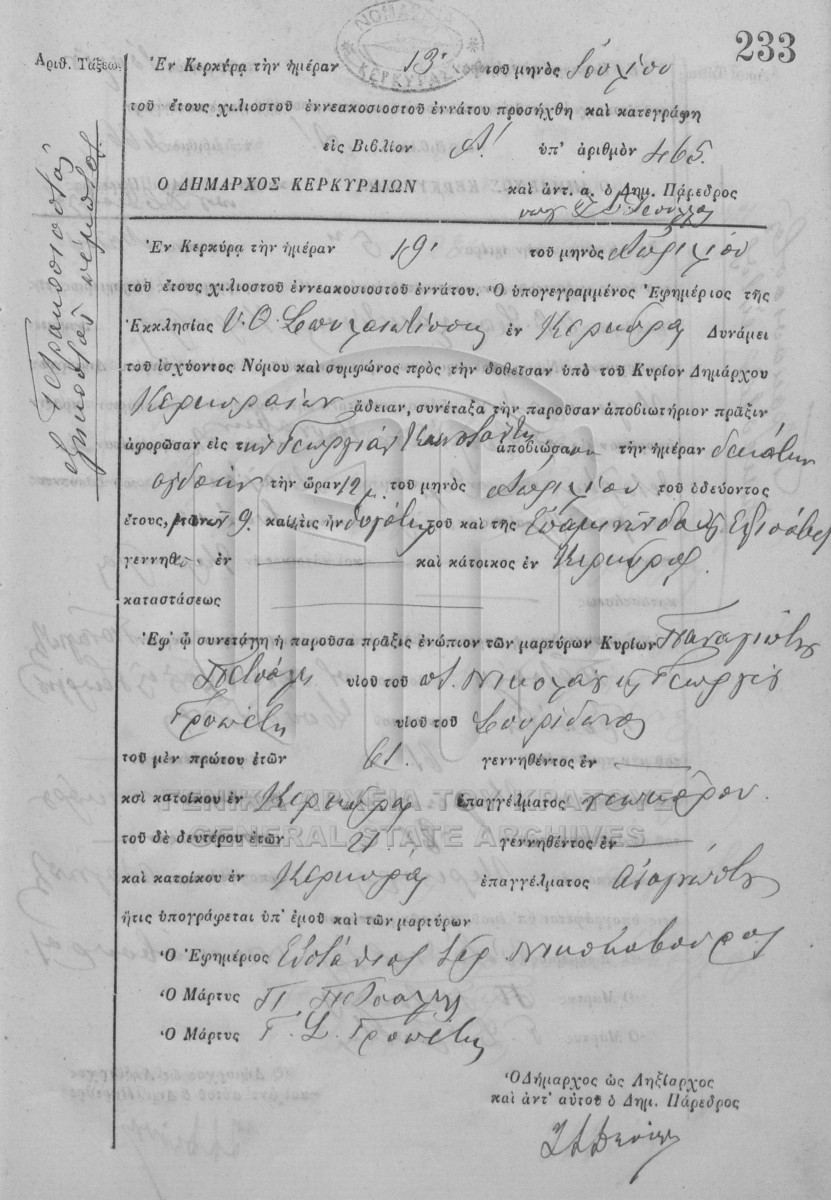 233
ΝΟΜΑΡΧΙΑ
ΚΕΡΚΥΡΑΣ
Ἀριθ. Τάξεως
Τετρακοσιοστὸς
ἑξηκοστὸς πέμπτος
Ἐν Κερκύρᾳ τὴν ἡμέραν 13 τοῦ μηνὸς Ἰουλίου
τοῦ ἔτους χιλιοστοῦ ἐννεακοσιοστοῦ ἐννάτου προσήχθη καὶ κατεγράφη
εἰς Βιβλίον Α! ὑπ' ἀριθμὸν 465.
Ο ΔΗΜΑΡΧΟΣ ΚΕΡΚΥΡΑΙΩΝ καὶ ἀντ. α. ὁ Δημ. Πάρεδρος
Ἐν Κερκύρᾳ τὴν ἡμέραν 19 τοῦ μηνὸς Ἀπριλίου
τοῦ ἔτους χιλιοστοῦ ἐννεακοσιοστοῦ ἐννάτου. Ὁ ὑπογεγραμμένος Ἐφημέριος τῆς
Ἐκκλησίας Υ. Θ. Σπηλαιωτίσσης ἐν Κερκύρᾳ Δυνάμει
τοῦ ἰσχύοντος Νόμου καὶ συμφώνος πρὸς τὴν δοθεῖσαν ὑπὸ τοῦ Κυρίου Δημάρχου
Κερκυραίων ἄδειαν, συνέταξα τὴν παροῦσαν ἀποβιωτήριον πρᾶξιν
ἀφορῶσαν εἰς τὴν Γεωργίαν ἀποβιώσασαν τὴν ἡμέραν δεκάτην
ὀγδόην τὴν ὥραν 12 μ. τοῦ μηνὸς Ἀπριλίου τοῦ ὁδεύοντος
ἔτους, μηνῶν 9. καὶ εἰς ἣν θυγάτηρ τοῦ καὶ τῆς Ἐπαμινώνδα καὶ Ἐλισάβετ
γεννηθεῖσα ἐν — καὶ κάτοικος ἐν Κερκύρᾳ.
καταστάσεως —
Ἐφ' ᾧ συνετάγη ἡ παροῦσα πρᾶξις ἐνώπιον τῶν μαρτύρων Κυρίων Παναγιώτη
Πετσάλη υἱοῦ τοῦ π. Νικολάου καὶ Γεωργίου
Γροπέτη υἱοῦ τοῦ Σπυρίδωνος
τοῦ μὲν πρώτου ἐτῶν 61. γεννηθέντος ἐν —
καὶ κατοίκου ἐν Κερκύρᾳ ἐπαγγέλματος νεωκόρου.
τοῦ δὲ δευτέρου ἐτῶν 21. γεννηθέντος ἐν —
καὶ κατοίκου ἐν Κερκύρᾳ ἐπαγγέλματος
ἥτις ὑπογράφεται ὑπ' ἐμοῦ καὶ τῶν μαρτύρων
Ὁ Ἐφημέριος Εὐστάθιος Ἱερ.
Ὁ Μάρτυς Π. Πετσάλης
Ὁ Μάρτυς Γ. Σ. Γροπέτης
Ὁ Δήμαρχος ὡς Ληξίαρχος
καὶ ἀντ' αὐτοῦ ὁ Δημ. Πάρεδρος
ΓΕΝΙΚΑ ΑΡΧΕΙΑ ΤΟΥ ΚΡΑΤΟΥΣ
GENERAL STATE ARCHIVES